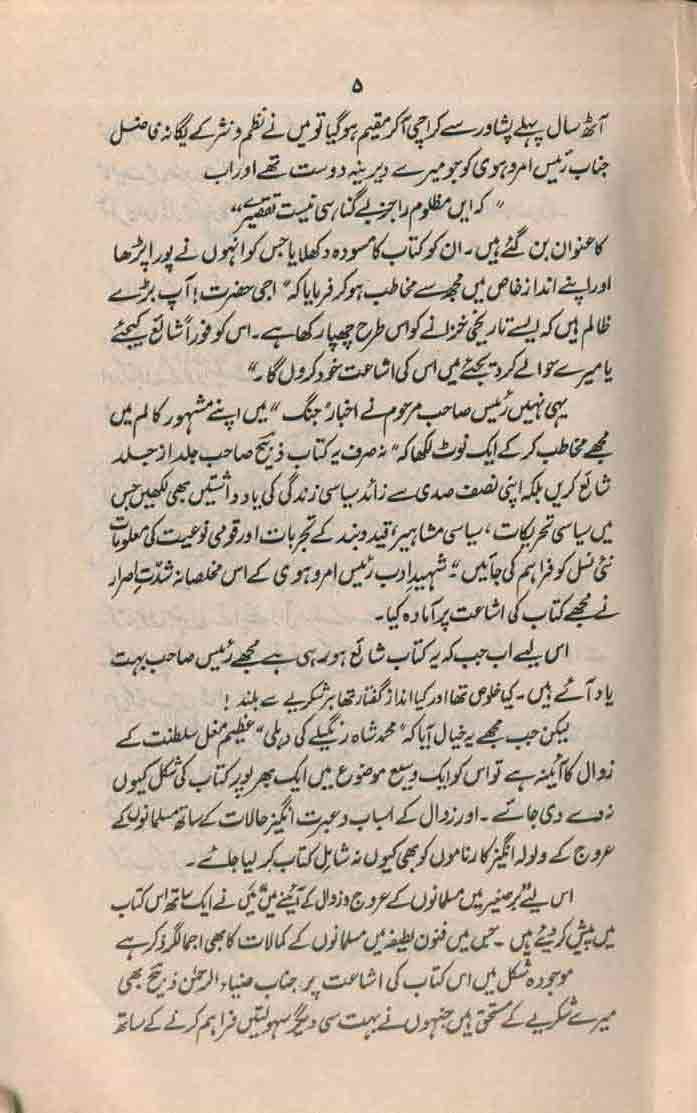 ۵
آٹھ سال پہلے پشاور سے کراچی آکر مقیم ہوگیا تو میں نے نظم و نثر کے یگانہ فاضل
جناب رئیس امروہوی کو جو میرے دیرینہ دوست تھے اور اب
" کہ ایں مظلوم را جز بے گناہی نیست تقصیرے "
کا عنوان بن گئے ہیں۔ ان کو کتاب کا مسودہ دکھلایا جس کو انہوں نے پورا پڑھا
اور اپنے انداز خاص میں مجھ سے مخاطب ہو کر فرمایا کہ " اجی حضرت! آپ بڑے
ظالم ہیں کہ ایسے تاریخی خزانے کو اس طرح چھپا رکھا ہے۔ اس کو فوراً شائع کیجئے
یا میرے حوالے کر دیجئے میں اس کی اشاعت خود کروں گا۔"
یہی نہیں رئیس صاحب مرحوم نے اخبار "جنگ" میں اپنے مشہور کالم میں
مجھے مخاطب کر کے ایک نوٹ لکھا کہ " نہ صرف یہ کتاب ذبیح صاحب جلد از جلد
شائع کریں بلکہ اپنی نصف صدی سے زائد سیاسی زندگی کی یادداشتیں بھی لکھیں جس
میں سیاسی تحریکات، سیاسی مشاہیر، قید و بند کے تجربات اور قومی نوعیت کی معلومات
نئی نسل کو فراہم کی جائیں"۔ شہیدِ ادب رئیس امروہوی کے اس مخلصانہ شدتِ اصرار
نے مجھے کتاب کی اشاعت پر آمادہ کیا۔
اس لیے اب جب کہ یہ کتاب شائع ہو رہی ہے مجھے رئیس صاحب بہت
یاد آئے ہیں۔ کیا خلوص تھا اور کیا انداز گفتار تھا ہر شکریے سے بلند!
لیکن جب مجھے یہ خیال آیا کہ "محمد شاہ رنگیلے کی دہلی" عظیم مغل سلطنت کے
زوال کا آئینہ ہے تو اس کو ایک وسیع موضوع میں ایک بھرپور کتاب کی شکل کیوں
نہ دے دی جائے۔ اور زوال کے اسباب و عبرت انگیز حالات کے ساتھ مسلمانوں کے
عروج کے ولولہ انگیز کارناموں کو بھی کیوں نہ شامل کتاب کر لیا جائے۔
اس لیے "برصغیر میں مسلمانوں کے عروج و زوال کے آئینے میں" میں نے ایک ساتھ اس کتاب
میں پیش کر دیئے ہیں۔ جس میں فنون لطیفہ میں مسلمانوں کے کمالات کا بھی اجمالاً ذکر ہے
موجودہ شکل میں اس کتاب کی اشاعت پر جناب ضیاء الرحمٰن ذبیح بھی
میرے شکریے کے مستحق ہیں جنہوں نے بہت سی دیگر سہولتیں فراہم کرنے کے ساتھ